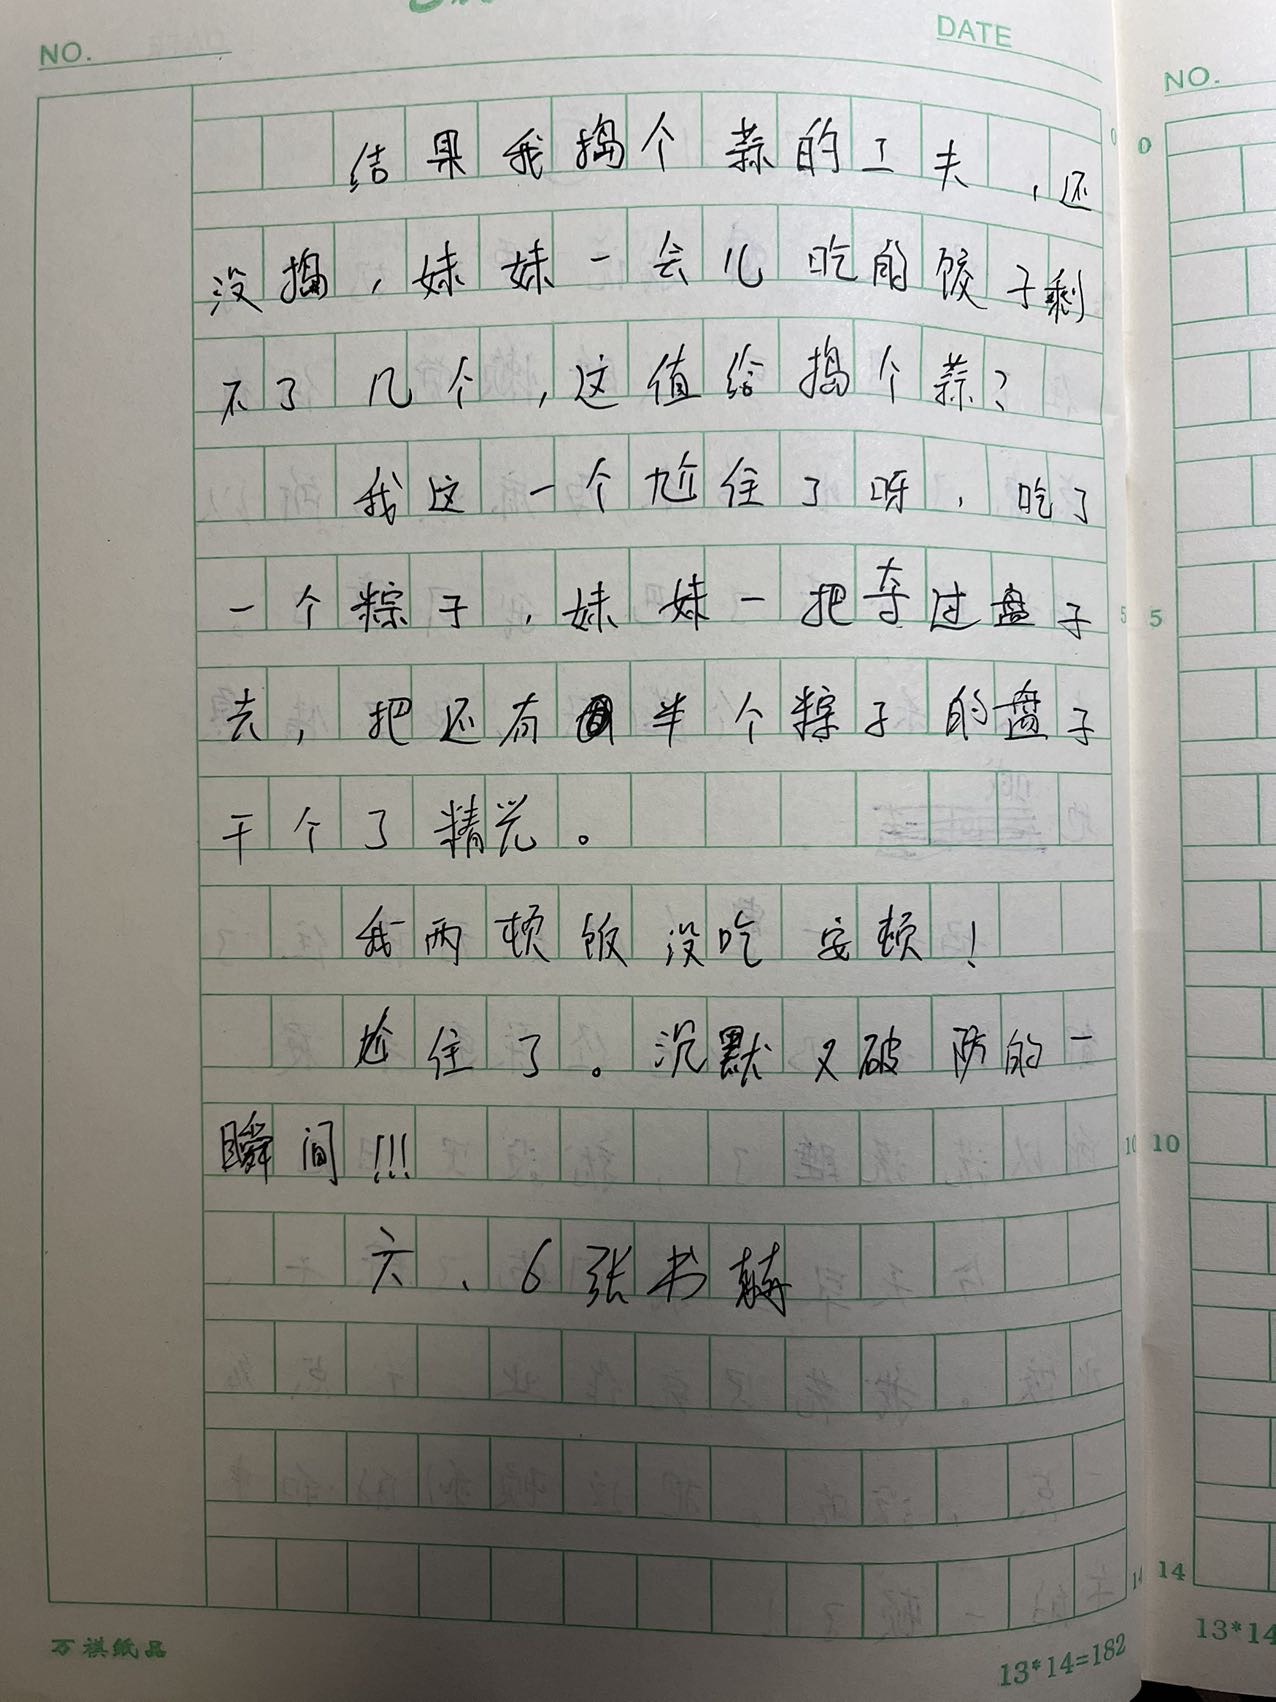 NO.
DATE
NO.
结果我捣个蒜的工夫，还
没捣，妹妹一会儿吃的饺子剩
不了几个，这值给捣个蒜？
我这一个尬住了呀，吃了
一个粽子，妹妹一把夺过盘子
去，把还有半个粽子的盘子
干个了精光。
我两顿饭没吃安顿！
尬住了。沉默又破防的一
瞬间!!!
六、6张书赫
0
0
5
5
10
10
14
14
万祺纸品
13*14=182
13*14